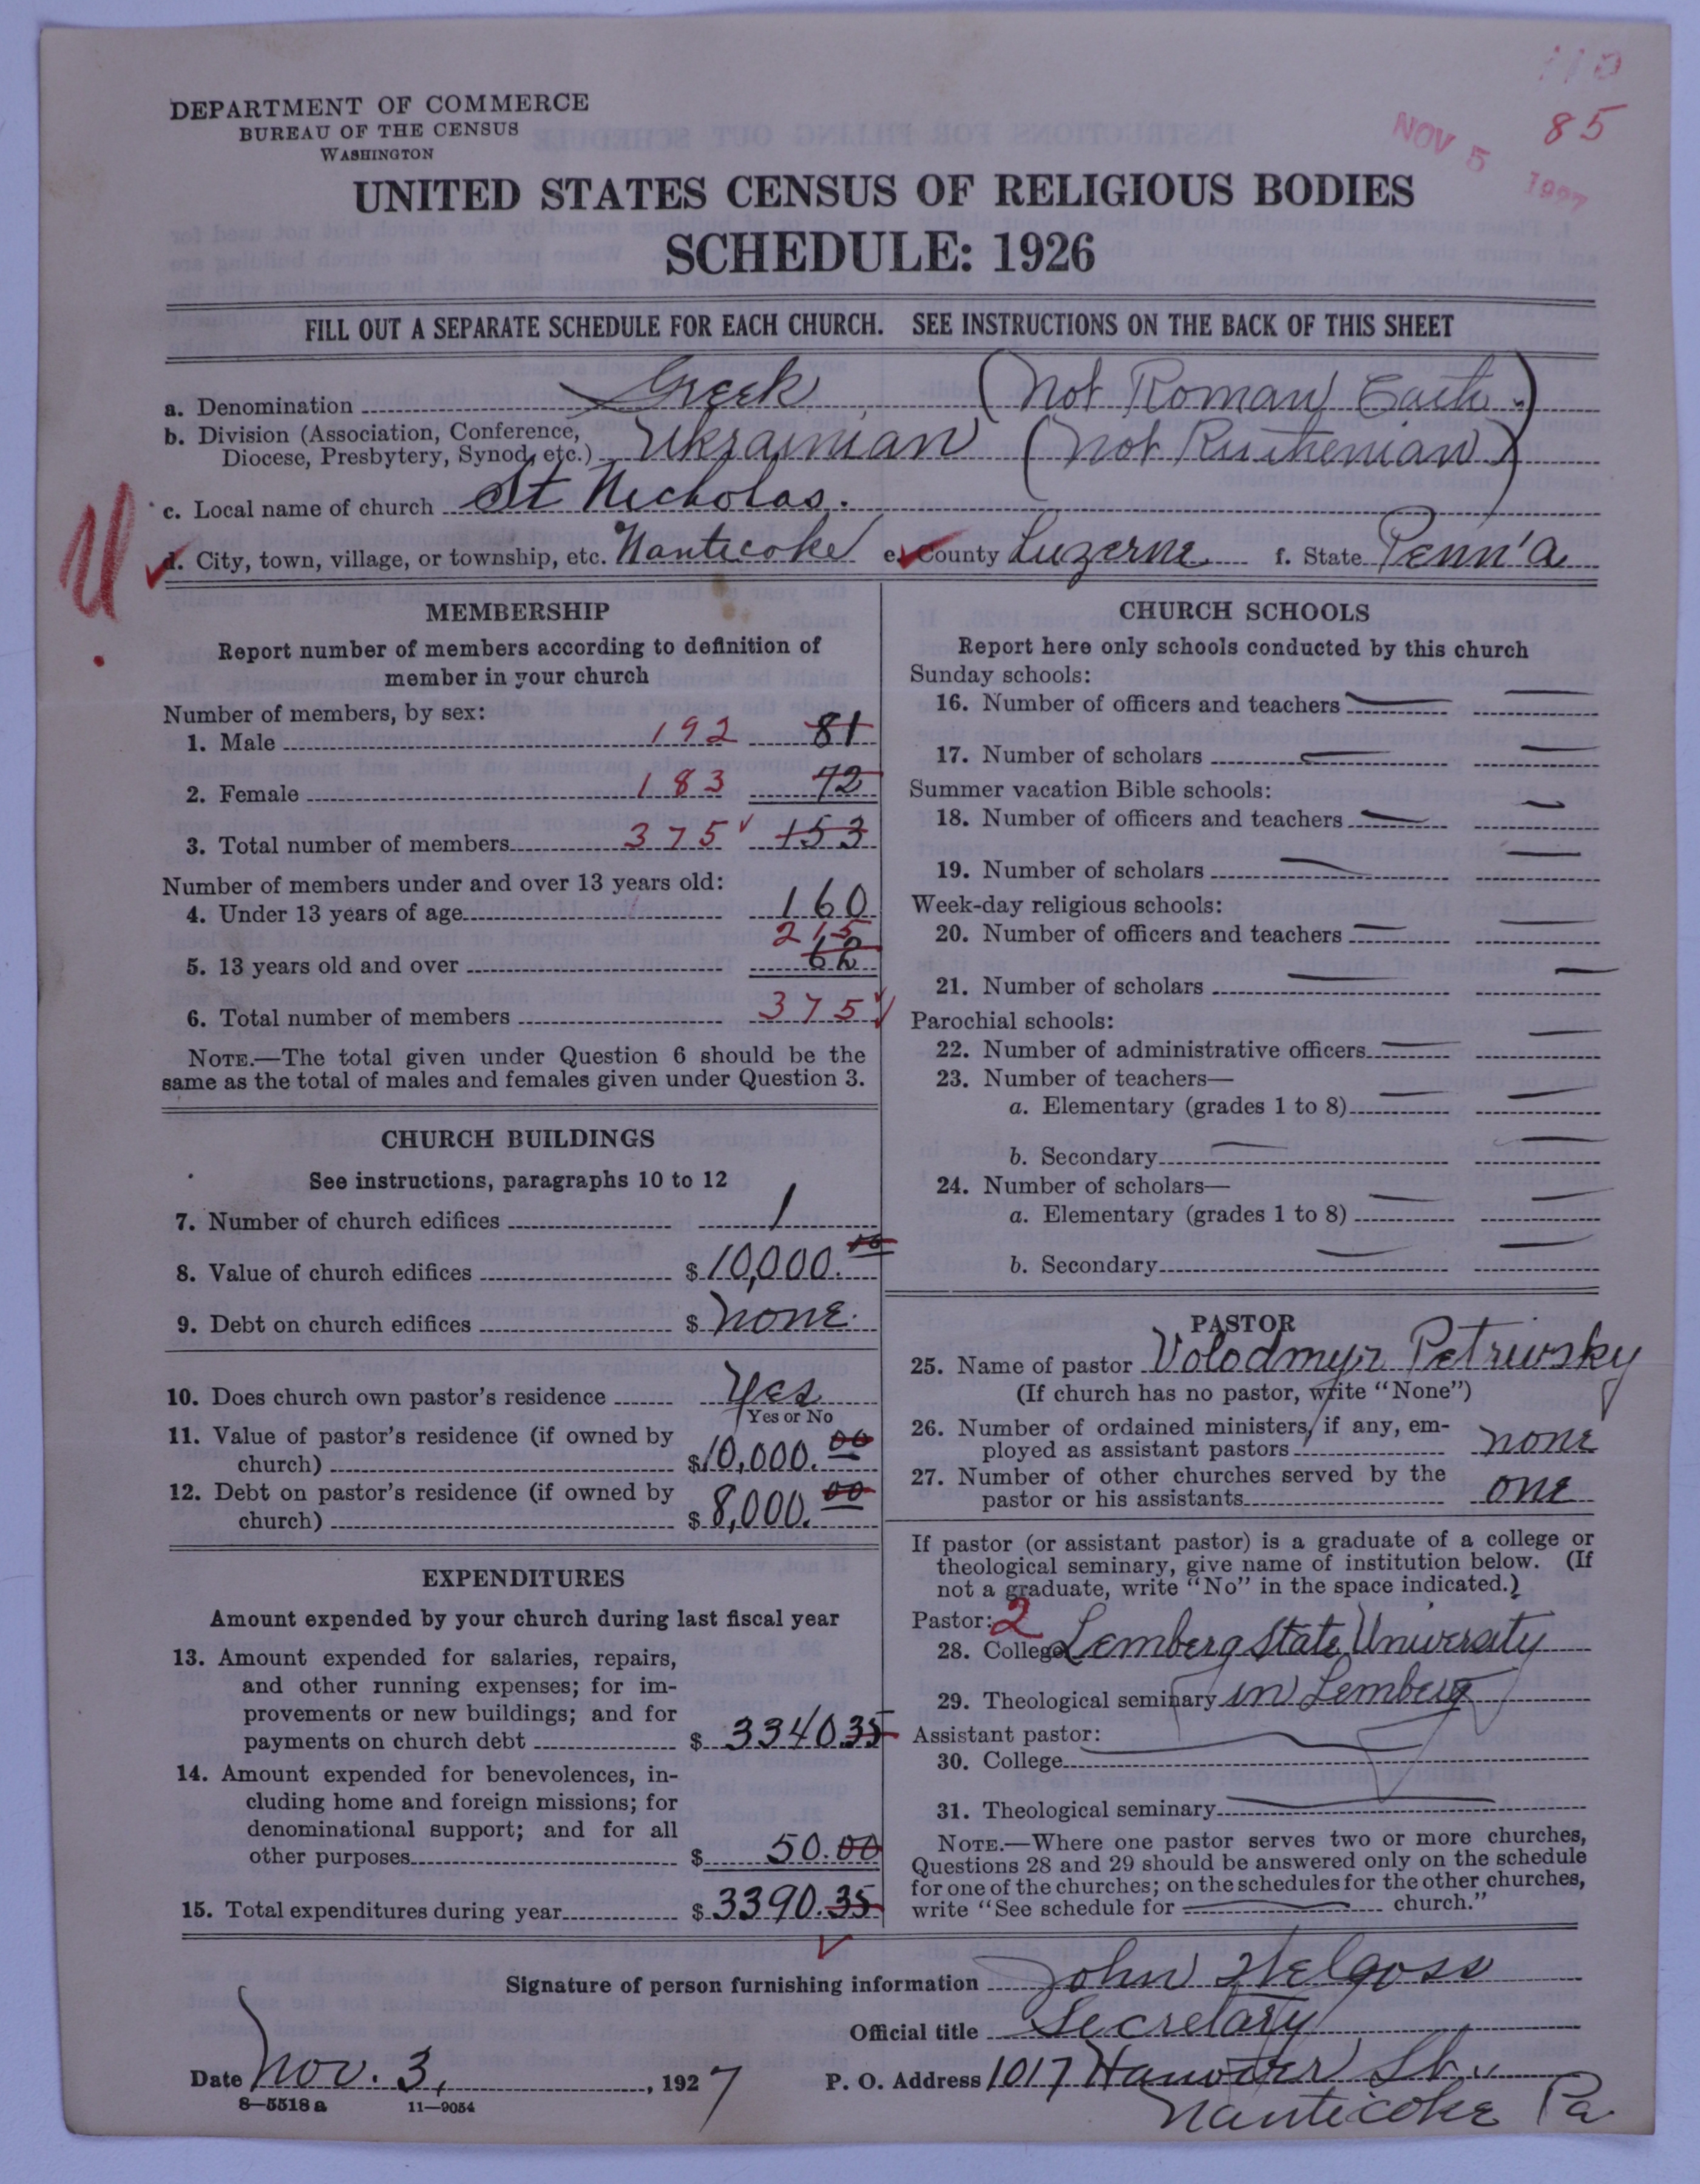 110
85
NOV 5 1927
DEPARTMENT OF COMMERCE
BUREAU OF THE CENSUS
WASHINGTON
UNITED STATES CENSUS OF RELIGIOUS BODIES
SCHEDULE: 1926
FILL OUT A SEPARATE SCHEDULE FOR EACH CHURCH. SEE INSTRUCTIONS ON THE BACK OF THIS SHEET
a. Denomination Greek (not Roman Cath.)
b. Division (Association, Conference,
Diocese, Presbytery, Synod, etc.) Ukrainian (not Ruthenian)
c. Local name of church St Nicholas.
U.
d. City, town, village, or township, etc. Nanticoke e. County Luzerne f. State Penn'a
MEMBERSHIP
Report number of members according to definition of
member in your church
Number of members, by sex:
1. Male 192 81
2. Female 183 72
3. Total number of members 375 153
Number of members under and over 13 years old:
4. Under 13 years of age 160
215
5. 13 years old and over 62
6. Total number of members 375
NOTE.—The total given under Question 6 should be the
same as the total of males and females given under Question 3.
CHURCH BUILDINGS
See instructions, paragraphs 10 to 12
7. Number of church edifices 1
8. Value of church edifices $10,000.00
9. Debt on church edifices $ none.
10. Does church own pastor's residence Yes
Yes or No
11. Value of pastor's residence (if owned by
church) $10,000.00
12. Debt on pastor's residence (if owned by
church) $8,000.00
EXPENDITURES
Amount expended by your church during last fiscal year
13. Amount expended for salaries, repairs,
and other running expenses; for im-
provements or new buildings; and for
payments on church debt $ 3340.35
14. Amount expended for benevolences, in-
cluding home and foreign missions; for
denominational support; and for all
other purposes $ 50.00
15. Total expenditures during year $ 3390.35
CHURCH SCHOOLS
Report here only schools conducted by this church
Sunday schools:
16. Number of officers and teachers
17. Number of scholars
Summer vacation Bible schools:
18. Number of officers and teachers
19. Number of scholars
Week-day religious schools:
20. Number of officers and teachers
21. Number of scholars
Parochial schools:
22. Number of administrative officers
23. Number of teachers—
a. Elementary (grades 1 to 8)
b. Secondary
24. Number of scholars—
a. Elementary (grades 1 to 8)
b. Secondary
PASTOR
25. Name of pastor Volodmyr Petriwsky
(If church has no pastor, write "None")
26. Number of ordained ministers, if any, em-
ployed as assistant pastors none
27. Number of other churches served by the
pastor or his assistants one
If pastor (or assistant pastor) is a graduate of a college or
theological seminary, give name of institution below. (If
not a graduate, write "No" in the space indicated.)
Pastor: 2
28. College Lemberg State University
29. Theological seminary in Lemberg
Assistant pastor:
30. College
31. Theological seminary
NOTE.—Where one pastor serves two or more churches,
Questions 28 and 29 should be answered only on the schedule
for one of the churches; on the schedules for the other churches,
write "See schedule for church."
Signature of person furnishing information John Helgoss
Official title Secretary
Date Nov. 3, 1927 P. O. Address 1017 Hanover St.
8—5518 a 11—9054
Nanticoke Pa